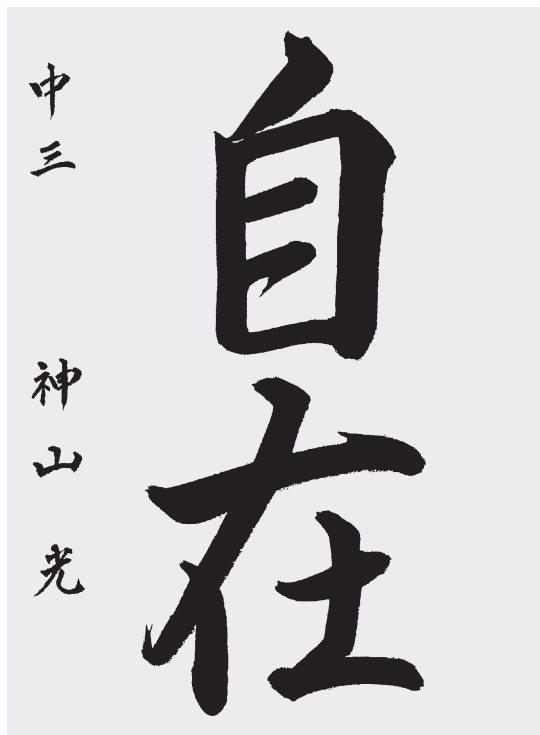 自在
中三 神山光